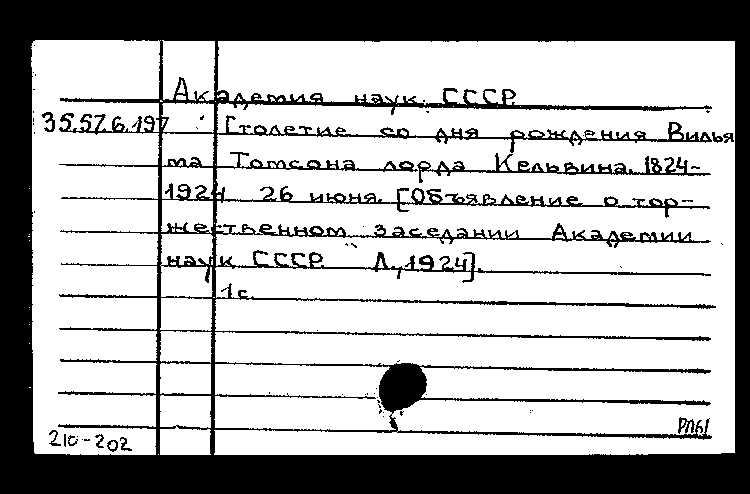 Академия наук СССР
35.57.6.197 Столетие со дня рождения Вилья
ма Томсона лорда Кельвина. 1824-
1924 26 июня. [Объявление о тор-
жественном заседании Академии
наук СССР Л., 1924].
1 с.
210-202